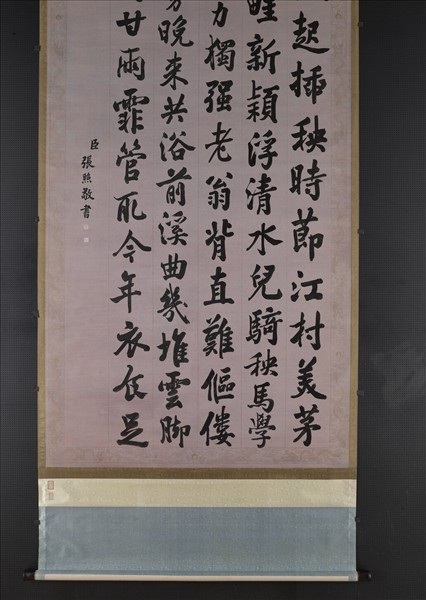 起插秧時節江村美茅
新穎浮清水兒騎秧馬學
力獨强老翁背直難傴僂
晚来共浴前溪曲幾堆雲脚
甘雨霏管取今年衣食足
臣張照敬書